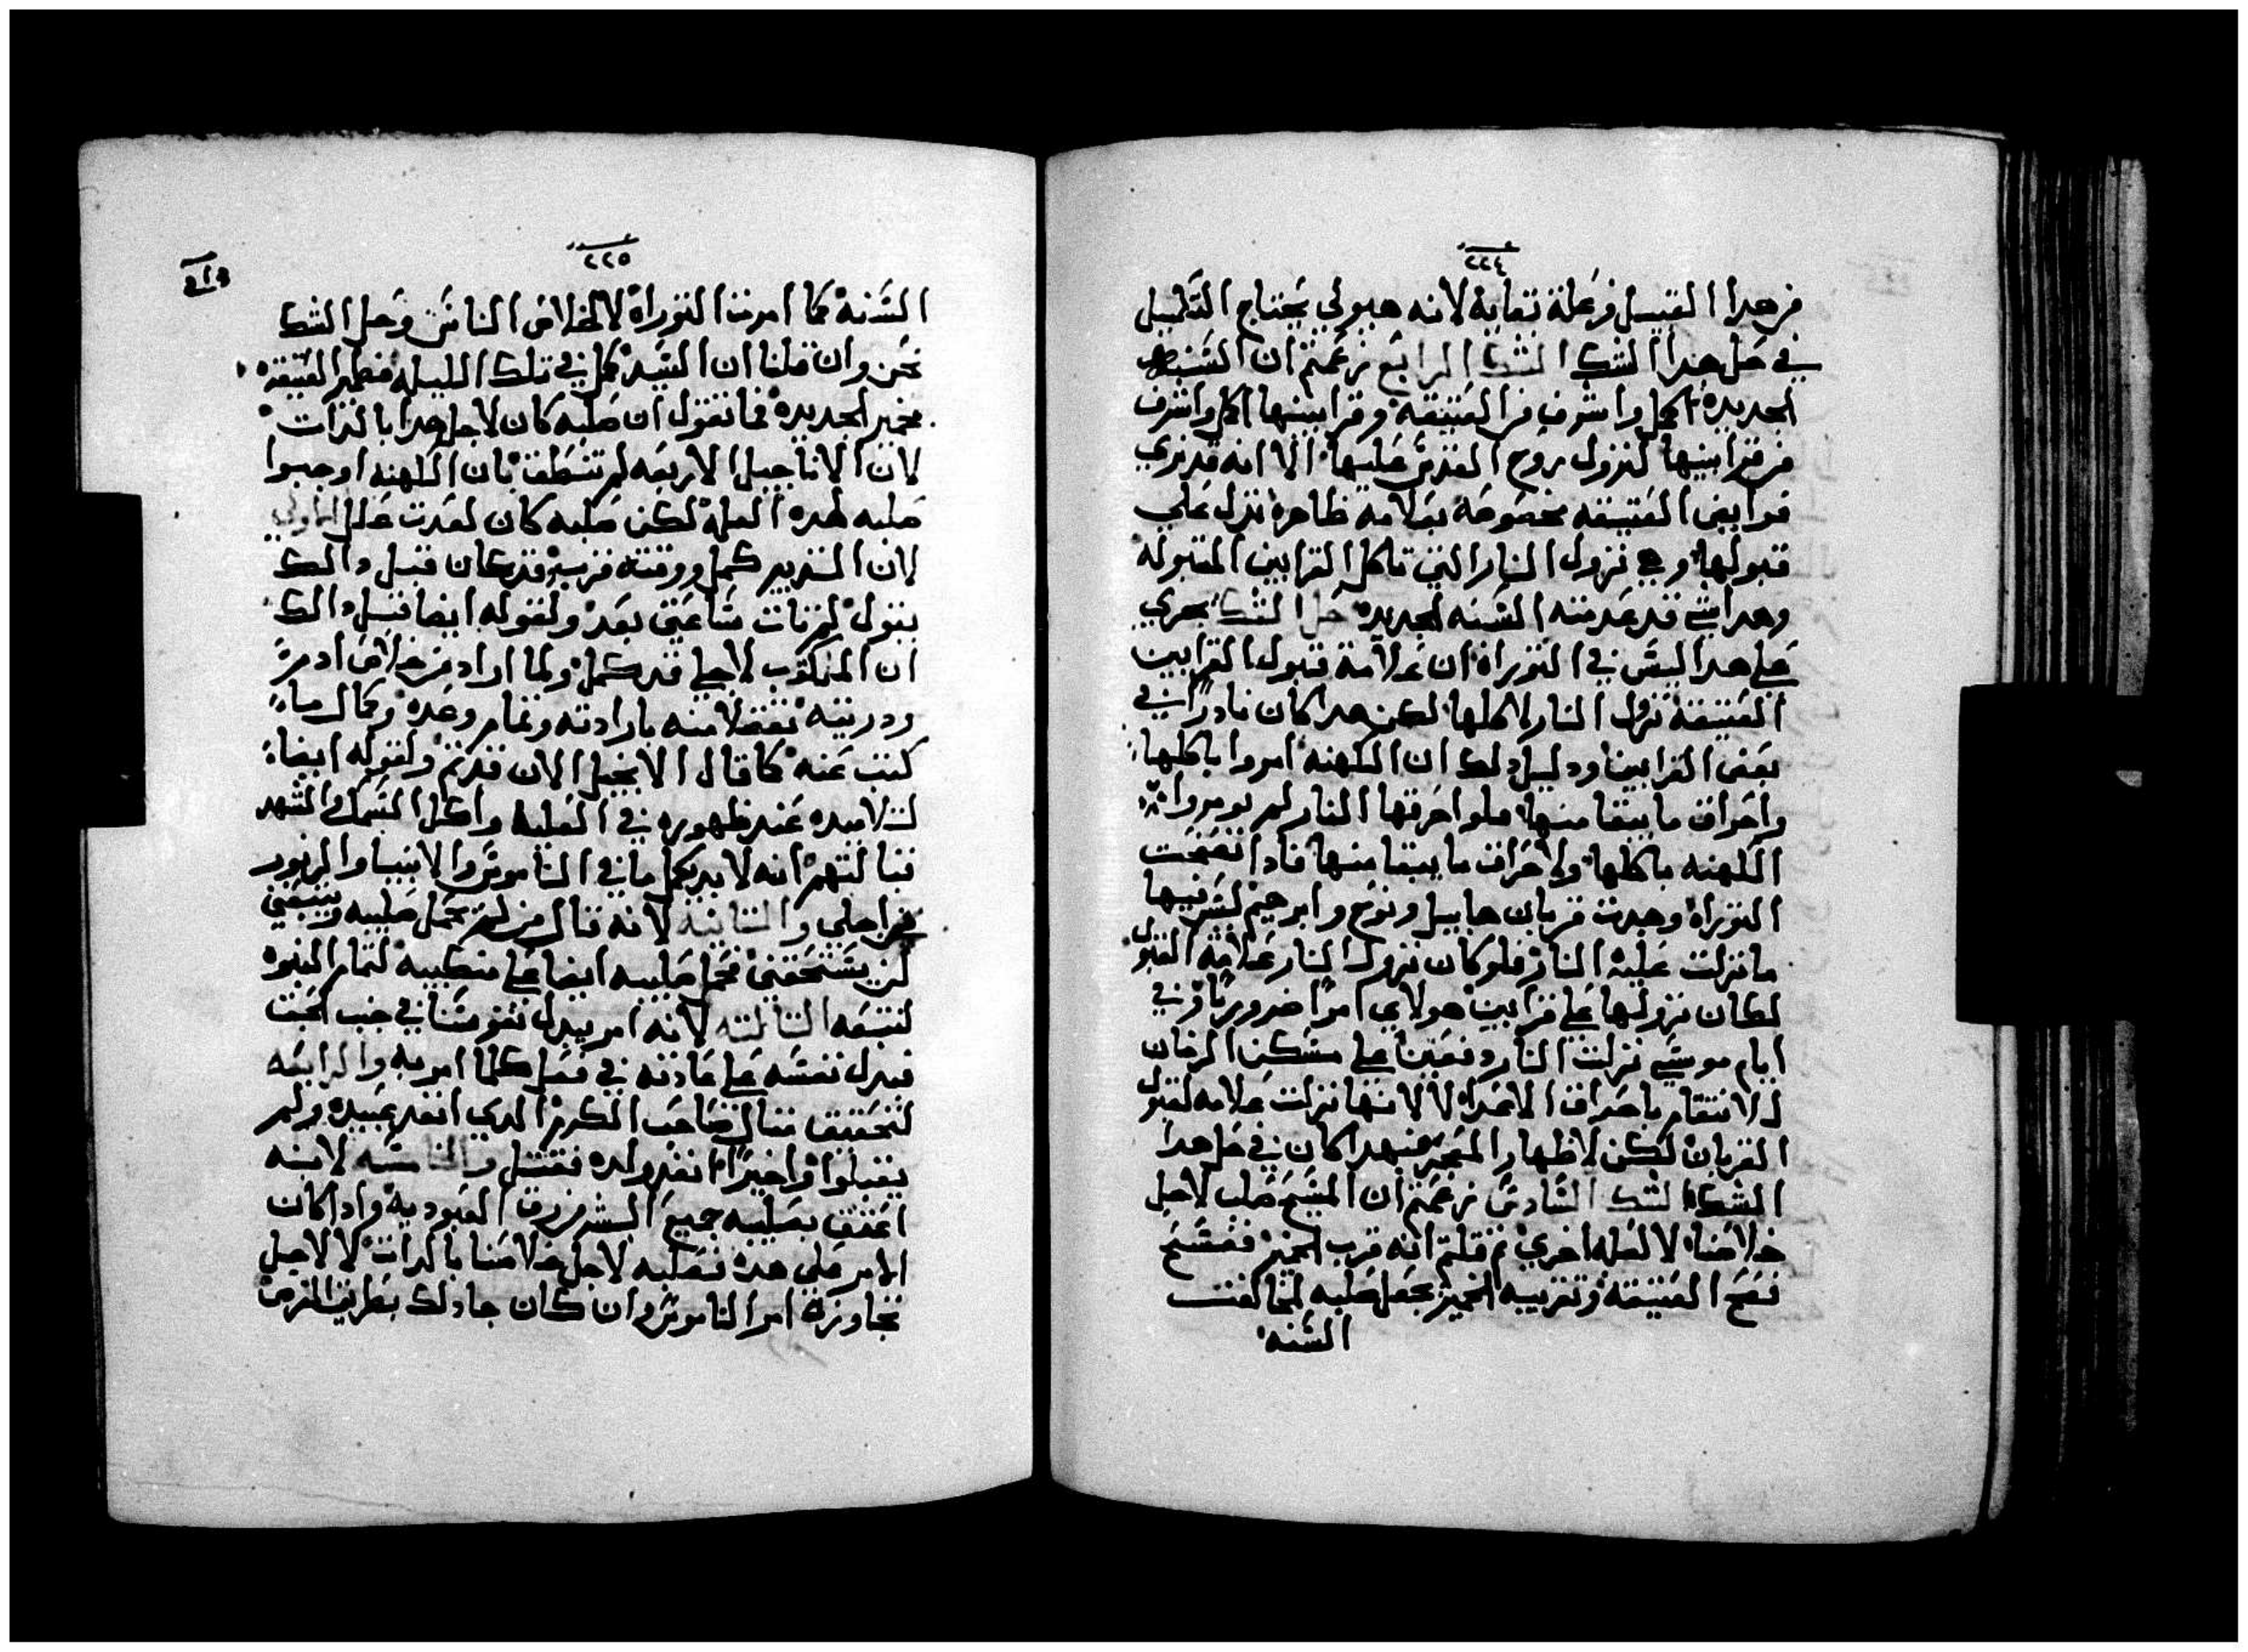 ٢٢٤
من هدا القبيل فرعلة تقابة لانه هيولي يحتاج التكميل
في حل هدا الشك الشك الرابع زعمتم ان السنه
الجديده اكمل واشرف من العتيقه وقرابينها اكمل واشرف
من قرابينها لنزول روح القدس عليها الا انه قد نري
قرابين العتيقه مخصوصه بعلامة ظاهره تدل علي
قبولها وهي نزول النار التي تاكل القرابين المقبوله
وهدا شي قد عدمته السنه الجديده حل الشك نحري
علي هدا ليس في التوراه ان علامة قبول القرابين
العتيقه نزول النار لاكلها لكن هدا كان نادرا في
بعض القرابين ودليل دلك ان الكهنه امروا باكلها
واحراق ما يبقا منها فلو احرقتها النار لم يومروا
الكهنه باكلها ولا حراق ما يبقا منها فادا تصفحت
التوراه وجدت قربان هابيل ونوح وابرهيم ليس فيها
ما نزلت عليه النار فلو كان نزول النار علامة القبول
لكان نزولها علي قرابين هولاي امرا ضروريا وفي
ايام موسي نزلت النار دفعتين علي مسكن الزمان
للانتقام باحراق الاعدا لا لانها نزلت علامه لقبول
القربان لكن لاظهار المعجز فهدا كان في حل هدا
الشك الشك السادس زعمتم ان المسيح صلب لاجل
خلاصنا لا لعله اخري ثم قلتم انه قرب الخمير ففسح
فصح العتيقة وتقريبه الخمير يجعل صلبه لمخالفت
السنه
٢٢٥
السنه كما امرت التوراه لا لخلاص الناس وحل الشك
نحن وان قلنا ان السيد كمل في تلك الليله فطير العتيقه
بخمير الجديده فما نقول ان صلبه كان لاجل هدا بالدات
لان الاناجيل الاربعه لم تنطق بان الكهنه اوجبوا
صلبه لهده العله لكن صلبه كان لعدت علل الاولي
لان التدبير كمل ووقته قرب وقد كان قبل دالك
يقول لم تات ساعتي بعد ولقوله ايضا قبل دالك
ان المكتوب لاجلي قد كمل ولما اراد من خلاص ادم
ودريته تفضلا منه بارادته وتمام وعده وكمال ما
كتب عنه كما قال الانجيل الان قد تم ولقوله ايضا
لتلاميده عند ظهوره في العليه واكل السمك والشهد
قبالتهم انه لا بد يكمل ما في الناموس والانبيا والزبور
من اجلي والتانيه لانه قال من لم يحمل صليبه ويتبعني
لن يستحقني فحمل صليبه ايضا علي منكبيه لتمام النبوه
لنتبعه التالته لانه امر ببدل نفوسنا في حب المحبت
فبدل نفسه علي عادته في فعل كلما امر به والرابعه
لتحقيق متال صاحب الكرم الدي انفد عبيده ولم
يقبلوا واخيرا انفد ولده فقتل والخامسه لانه
اعتق بصلبه جميع البشر من رق العبوديه وادا كان
الامر علي هده فصلبه لاجل خلاصنا بالدات لا لاجل
تجاوزة امر الناموس وان كان جا دلك بطريق العرض